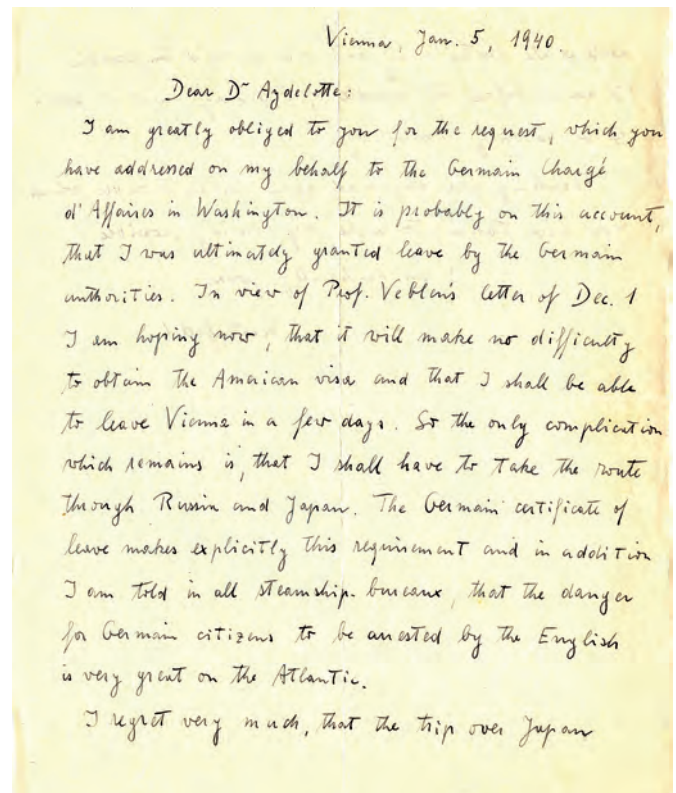 Vienna, Jan. 5, 1940.
Dear Dr Aydelotte:
I am greatly obliged to you for the request, which you
have addressed on my behalf to the Germain Chargé
d'Affaires in Washington. It is probably on this account,
that I was ultimately granted leave by the Germain
authorities. In view of Prof. Veblen's letter of Dec. 1
I am hoping now, that it will make no difficulty
to obtain the American visa and that I shall be able
to leave Vienna in a few days. So the only complication
which remains is, that I shall have to take the route
through Russia and Japan. The Germain certificate of
leave makes explicitly this requirement and in addition
I am told in all steamship-bureaux, that the danger
for Germain citizens to be arrested by the English
is very great on the Atlantic.
I regret very much, that the trip over Japan